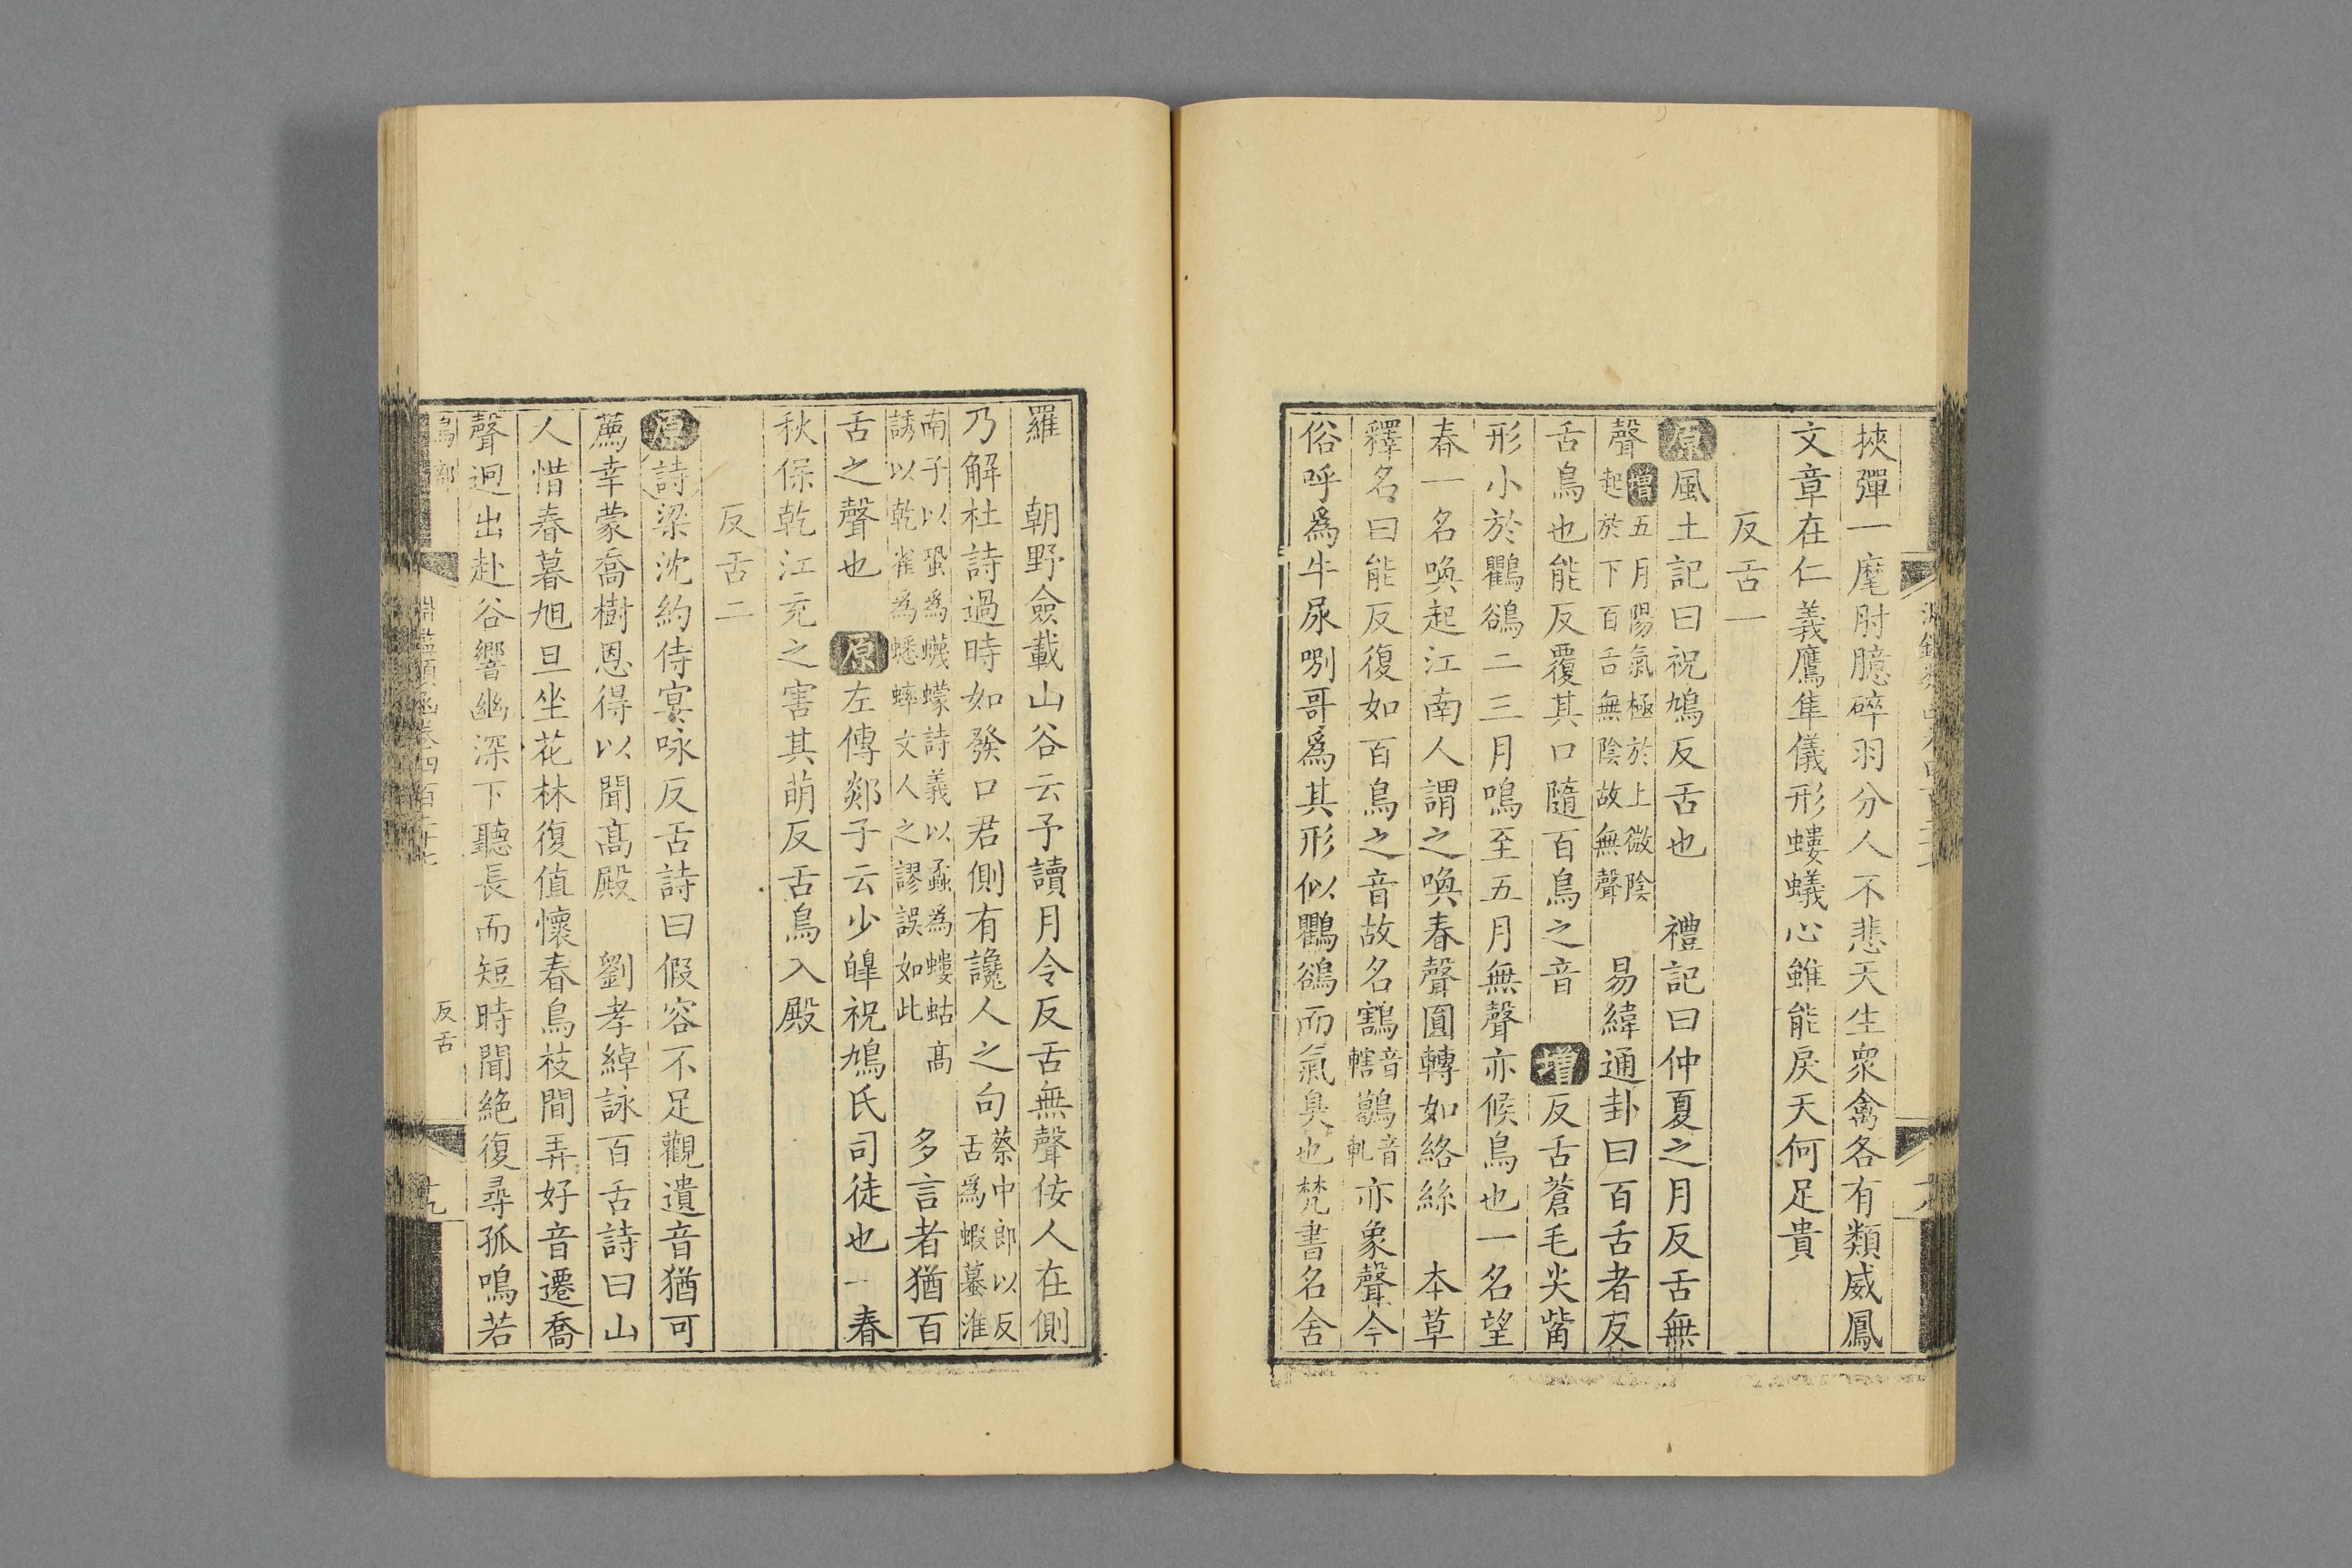 挾彈一麾肘臆碎羽分人不悲天生衆禽各有類威鳳
文章在仁義鷹隼儀形螻蟻心雖能戾天何足貴
反舌一
原風土記曰祝鳩反舌也 禮記曰仲夏之月反舌無
聲增五月陽氣極於上微陰起於下百舌無陰故無聲 易緯通卦曰百舌者反
舌鳥也能反覆其口隨百鳥之音 增反舌蒼毛尖觜
形小於鸜鵒二三月鳴至五月無聲亦候鳥也一名望
春一名喚起江南人謂之喚春聲圓轉如絡絲 本草
釋名曰能反復如百鳥之音故名鶷音轄鶷音軋亦象聲今
俗呼爲牛屎唎哥爲其形似鸜鵒而氣臭也梵書名舍
羅 朝野僉載山谷云予讀月令反舌無聲佞人在側
乃解杜詩過時如發口君側有讒人之句蔡中郎以反舌爲蝦蟇淮
南子以蛩爲蠛蠓詩義以蟊爲螻蛄高誘以乾雀爲蟋蟀文人之謬誤如此 多言者猶百
舌之聲也 原左傳郯子云少皥祝鳩氏司徒也 一春
秋保乾江充之害其萌反舌鳥入殿
反舌二
原詩梁沈約侍宴咏反舌詩曰假容不足觀遺音猶可
薦幸蒙喬樹恩得以聞高殿 劉孝綽詠百舌詩曰山
人惜春暮旭旦坐花林復值懷春鳥枝間弄好音遷喬
聲迥出赴谷響幽深下聽長而短時聞絕復尋孤鳴若
鳥部
反舌
十九